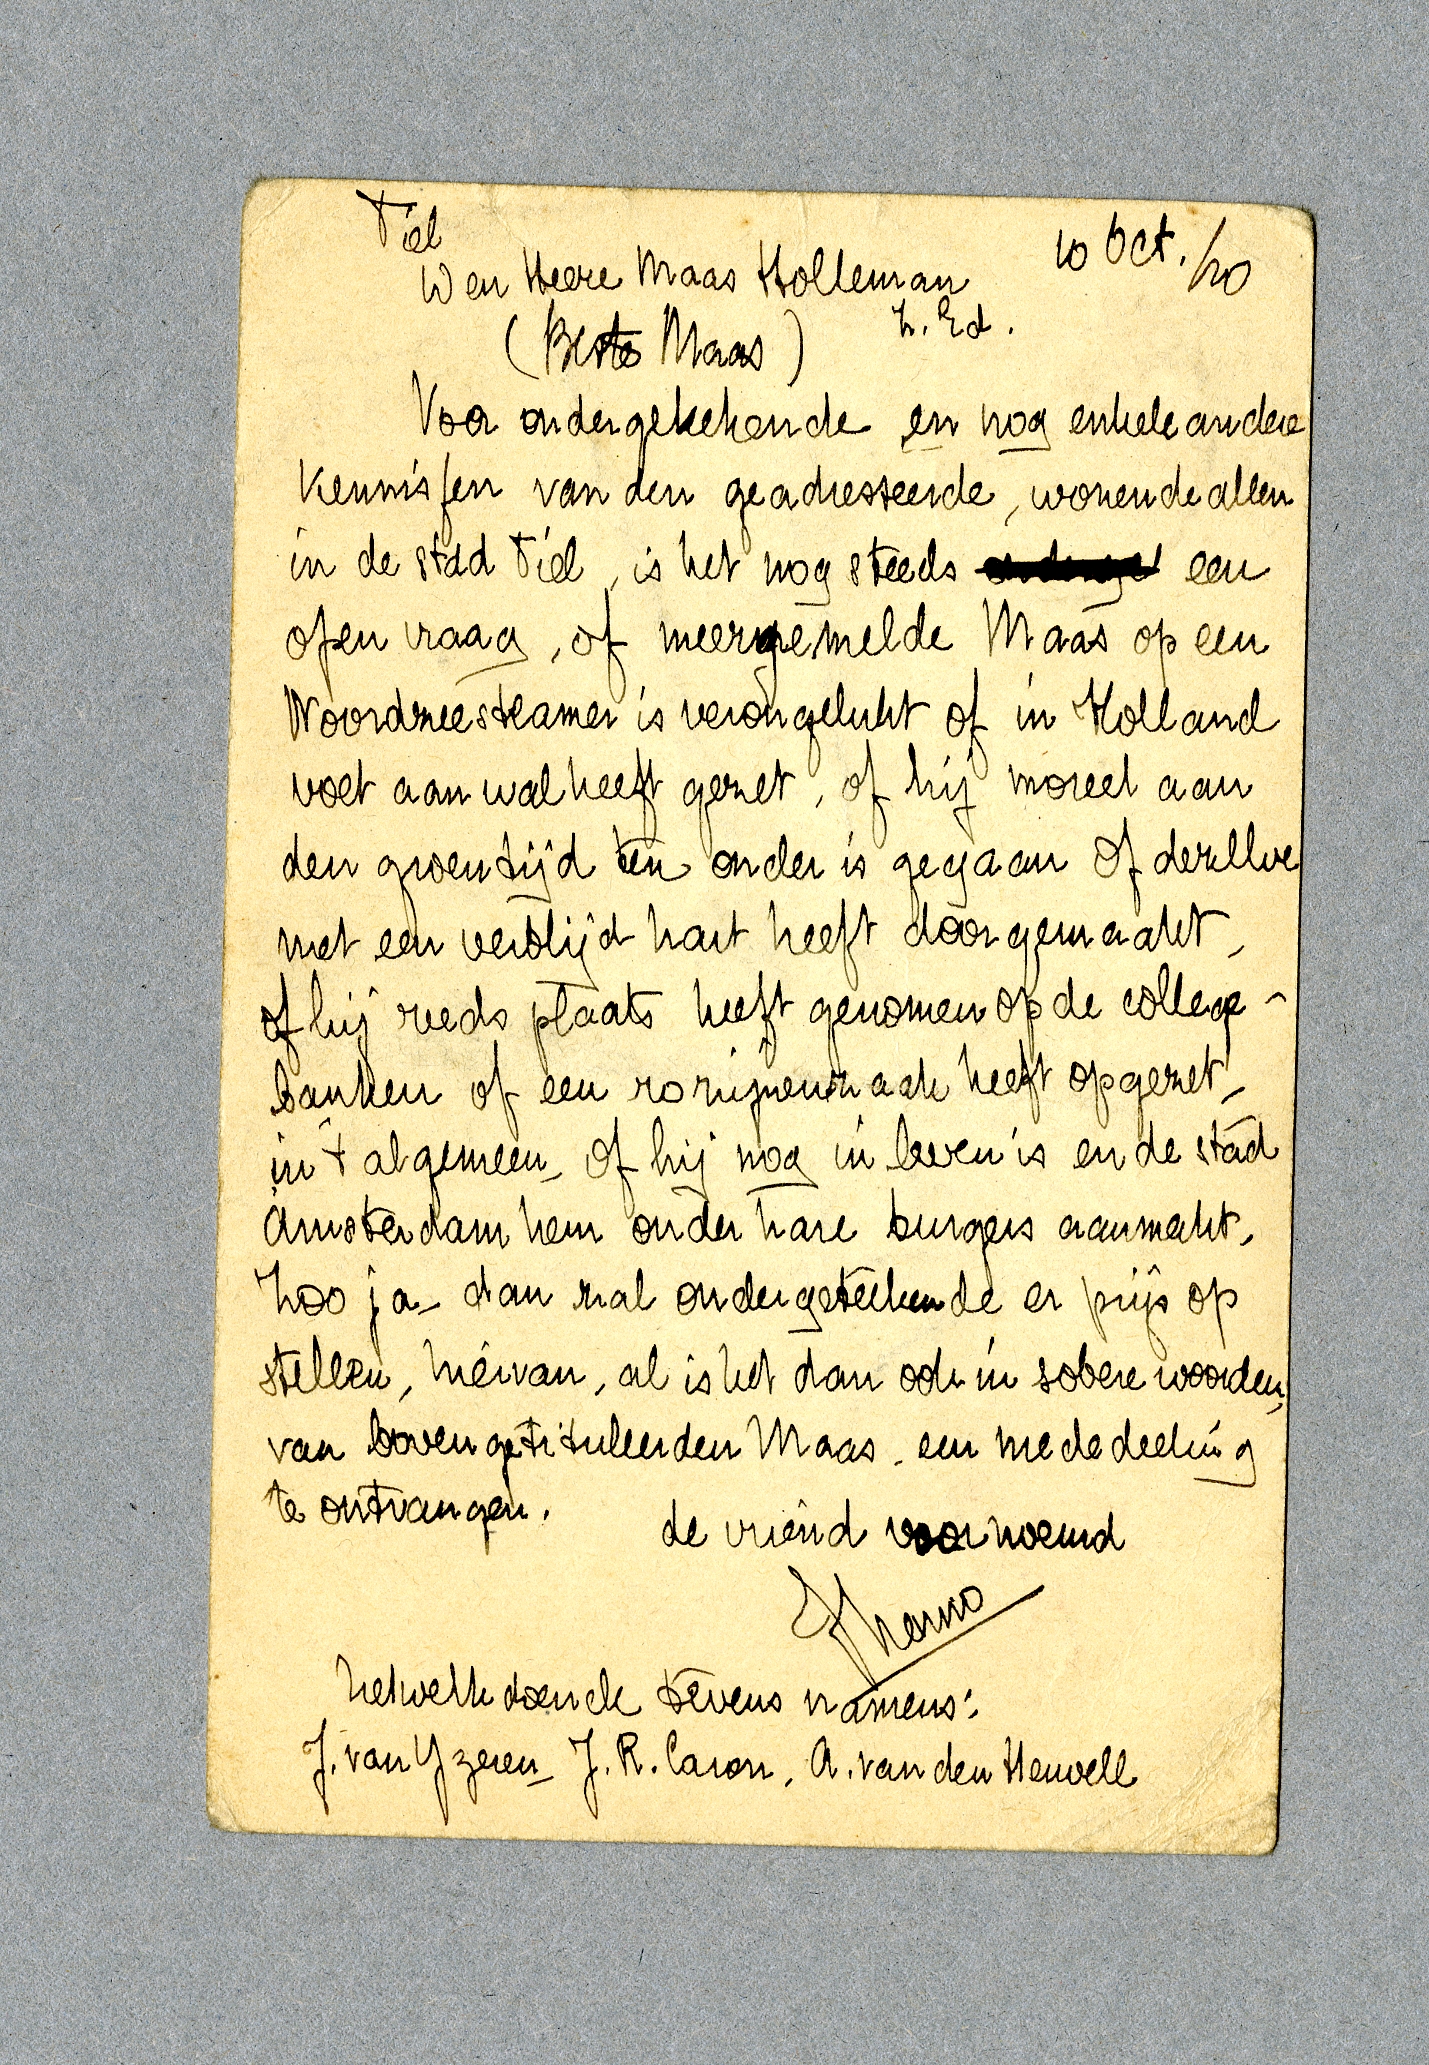 Tiel
10 Oct. /20
Den Heere Maas Holleman
Z. Ed.
(Beste Maas)
Voor ondergetekende en nog enkele andere
kennissen van den geadresseerde, wonende allen
in de stad Tiel, is het nog steeds een
open vraag, of meergemelde Maas op een
Noordzeesteamer is verongelukt of in Holland
voet aan wal heeft gezet, of hij moreel aan
den groentijd ten onder is gegaan of dezelve
met een verblijd hart heeft doorgemaakt,
of hij reeds plaats heeft genomen op de college-
banken of een rozijnenzaak heeft opgezet,
in 't algemeen, of hij nog in leven is en de stad
Amsterdam hem onder hare burgers aanmerkt.
Zoo ja, dan zal ondergeteekende er prijs op
stellen, hiervan, al is het dan ook in sobere woorden,
van bovengetituleerden Maas, een mededeeling
te ontvangen.
de vriend voornoemd
hetwelk doende tevens namens:
J. van Yzeren, J. R. Caron, A. van den Heuvell